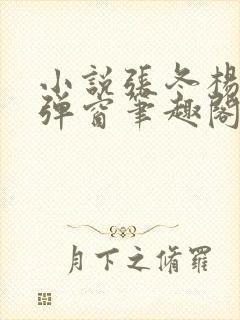 小説張冬楊
弹窗筆趣閣
月下之脩羅